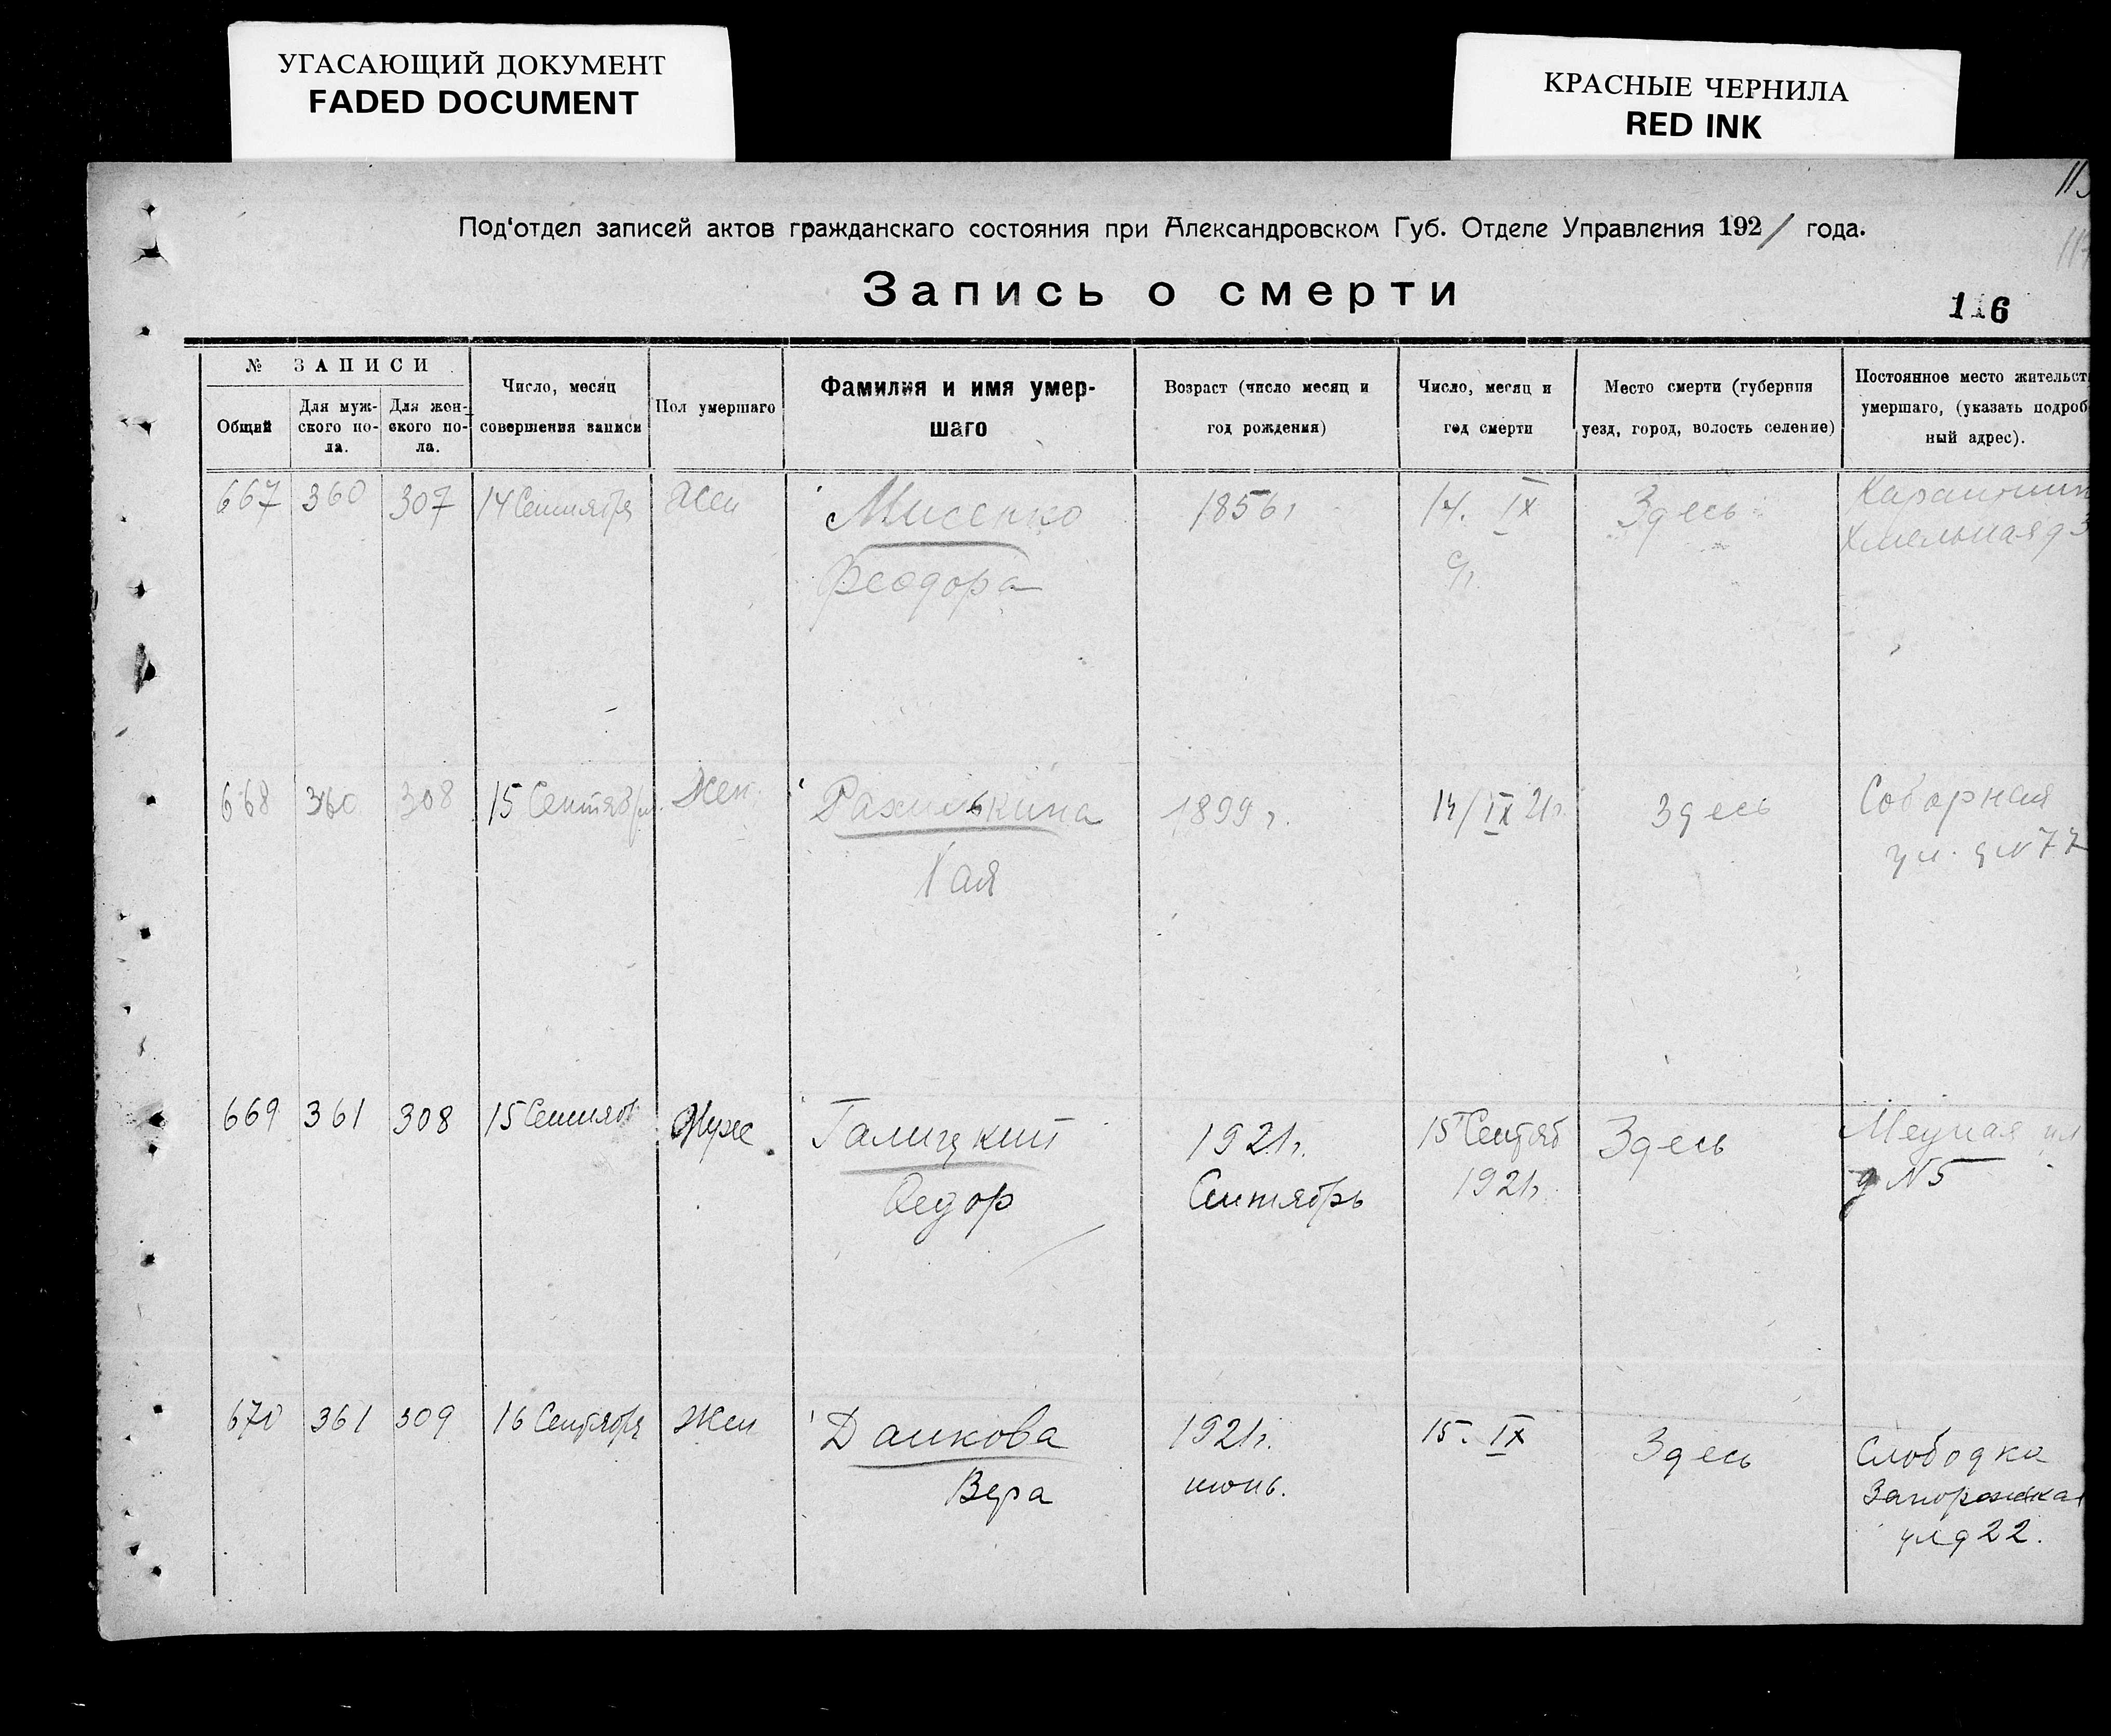 УГАСАЮЩИЙ ДОКУМЕНТ
FADED DOCUMENT
КРАСНЫЕ ЧЕРНИЛА
RED INK
Под'отдел записей актов гражданскаго состояния при Александровском Губ. Отделе Управления 1921 года.
Запись о смерти
116
№ ЗАПИСИ
Общий
Для муж-
ского по-
ла.
Для жен-
ского по-
ла.
Число, месяц
совершения записи
Пол умершаго
Фамилия и имя умер-
шаго
Возраст (число месяц и
год рождения)
Число, месяц и
год смерти
Место смерти (губерния
уезд, город, волость селение)
Постоянное место жительст
умершаго, (указать подроб
ный адрес).
667 360 307 14 Сентября Жен Мисенко 1856г 14. IX Здесь
Феодора
Хмельная д 3
668 360 308 15 Сентября Жен. Рахилькина 1899 г. 14/IX 21г Здесь Соборная
Хая ул. д N 77
669 361 308 15 Сентяб Муж Галицкий 1921г. 15 Сентяб Здесь
Федор Сентябрь 1921г. д N 5
670 361 309 16 Сентября Жен Данкова 1921г. 15. IX Здесь Слободка
Вера июнь. Запорожская
ул д 22.